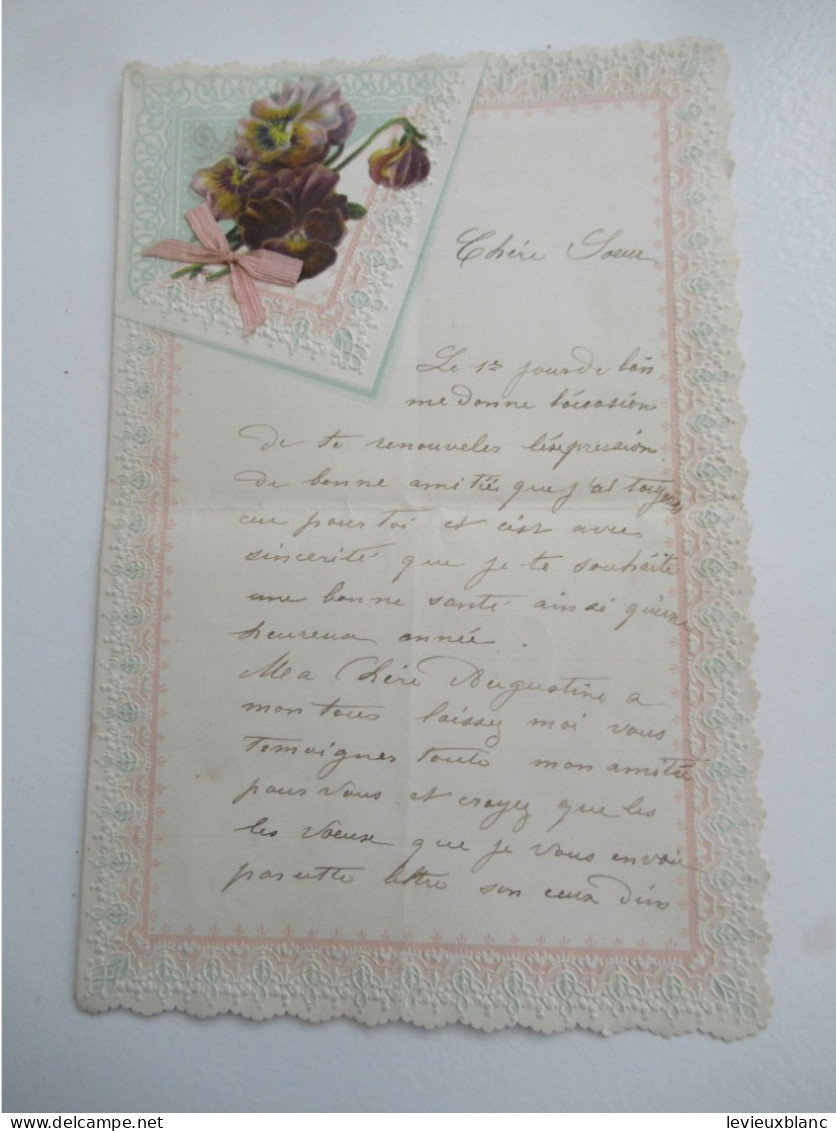 Chére Soeur
Le 1er jour de l'an
me donne l'occasion
de te renouveles l'expression
de bonne amitié que j'ai toujours
eu pour toi et c'est avec
sincerité que je te souhaite
une bonne santé ainsi qu'une
heureux année.
Ma Chére Augustine a
mon tous laissez moi vous
temoignes toute mon amitié
pour vous et croyez que les
les voeux que je vous envoie
par cette lettre son ceux d'un
levieuxblanc
delcampe.net